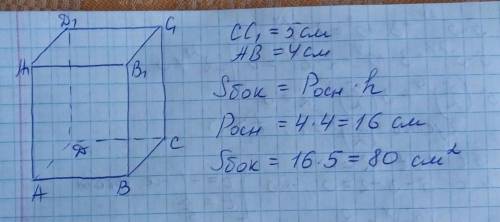 D₁ C₁
A₁ B₁
D C
A B
CC₁ = 5 см
AB = 4 см
Sбок = Pосн · h
Pосн = 4 · 4 = 16 см
Sбок = 16 · 5 = 80 см²